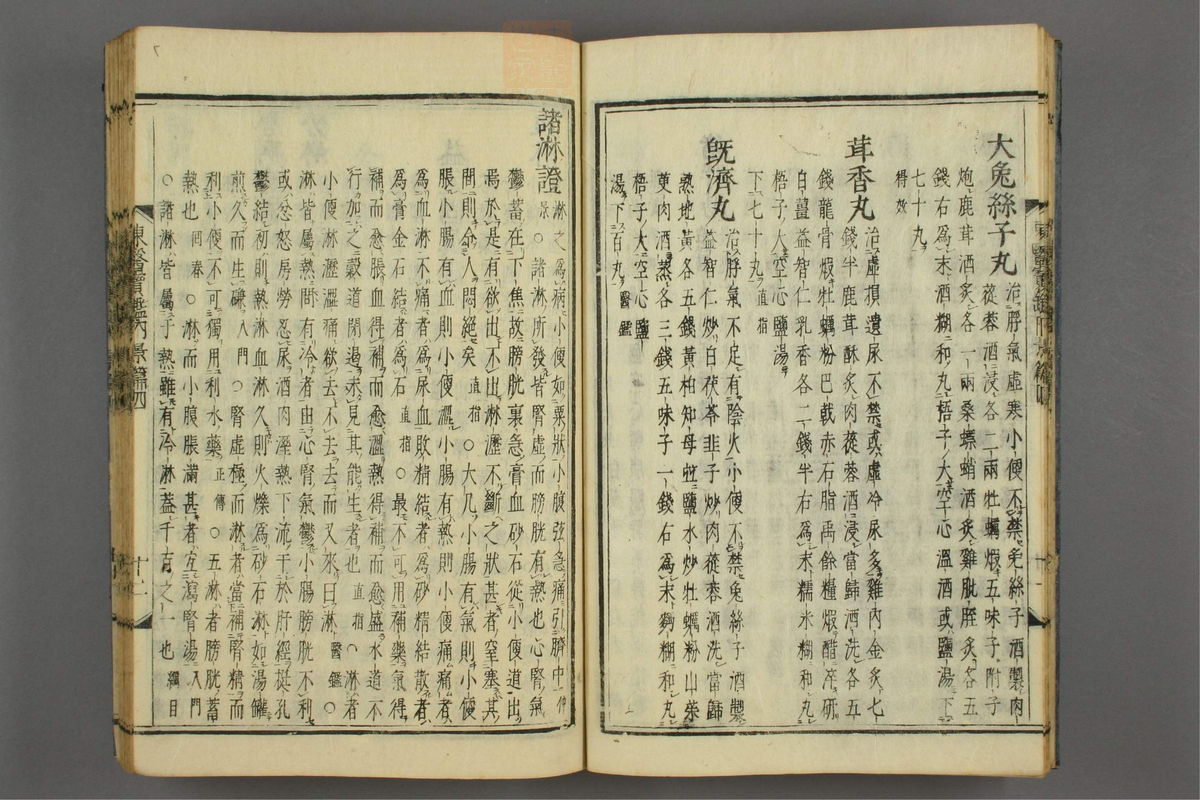 大兔絲子丸 治脬氣虛寒小便不禁兔絲子酒製肉
蓯蓉酒浸各二兩牡蠣煅五味子附子
炮鹿茸酒炙各一兩桑螵蛸酒炙雞肶胵炙各五
錢右爲末酒糊和丸梧子大空心溫酒或鹽湯下
七十丸
得效
茸香丸 治虛損遺尿不禁或虛冷尿多雞內金炙七
錢半鹿茸酥炙肉蓯蓉酒浸當歸酒洗各五
錢龍骨煅牡蠣粉巴戟赤石脂禹餘糧煅醋淬研
白薑益智仁乳香各二錢半右爲末糯米糊和丸
梧子大空心鹽湯
下七十丸直指
旣濟丸 治脬氣不足有陰火小便不禁兔絲子酒製
益智仁炒白茯苓韭子炒肉蓯蓉酒洗當歸
熟地黃各五錢黃柏知母並鹽水炒牡蠣粉山茱
萸肉酒蒸各三錢五味子一錢右爲末麪糊和丸
梧子大空心鹽
湯下百丸醫鑑
諸淋證 淋之爲病小便如粟狀小腹弦急痛引臍中仲
景○諸淋所發皆腎虛而膀胱有熱也心腎氣
鬱蓄在下焦故膀胱裏急膏血砂石從小便道出
焉於是有欲出不出淋瀝不斷之狀甚者窒塞其
間則令人悶絕矣直指○大凡小腸有氣則小便
脹小腸有血則小便澁小腸有熱則小便痛痛者
爲血淋不痛者爲尿血敗精結者爲砂精結散者
爲膏金石結者爲石直指○最不可用補藥氣得
補而愈脹血得補而愈澁熱得補而愈盛水道不
行加之穀道閉遏未見其能生者也直指○淋者
小便淋瀝澁痛欲去不去去而又來曰淋醫鑑○
淋皆屬熱間有冷者由心腎氣鬱小腸膀胱不利
或忿怒房勞忍尿酒肉溼熱下流干於肝經挺孔
鬱結初則熱淋血淋久則火爍爲砂石淋如湯罐
煎久而生磏入門○腎虛極而淋者當補腎精而
利小便不可獨用利水藥正傳○五淋者膀胱蓄
熱也回春○淋而小腹脹滿甚者宜瀉腎湯入門
○諸淋皆屬于熱雖有冷淋蓋千百之一也綱目
東醫寶鑑內景篇四
十二